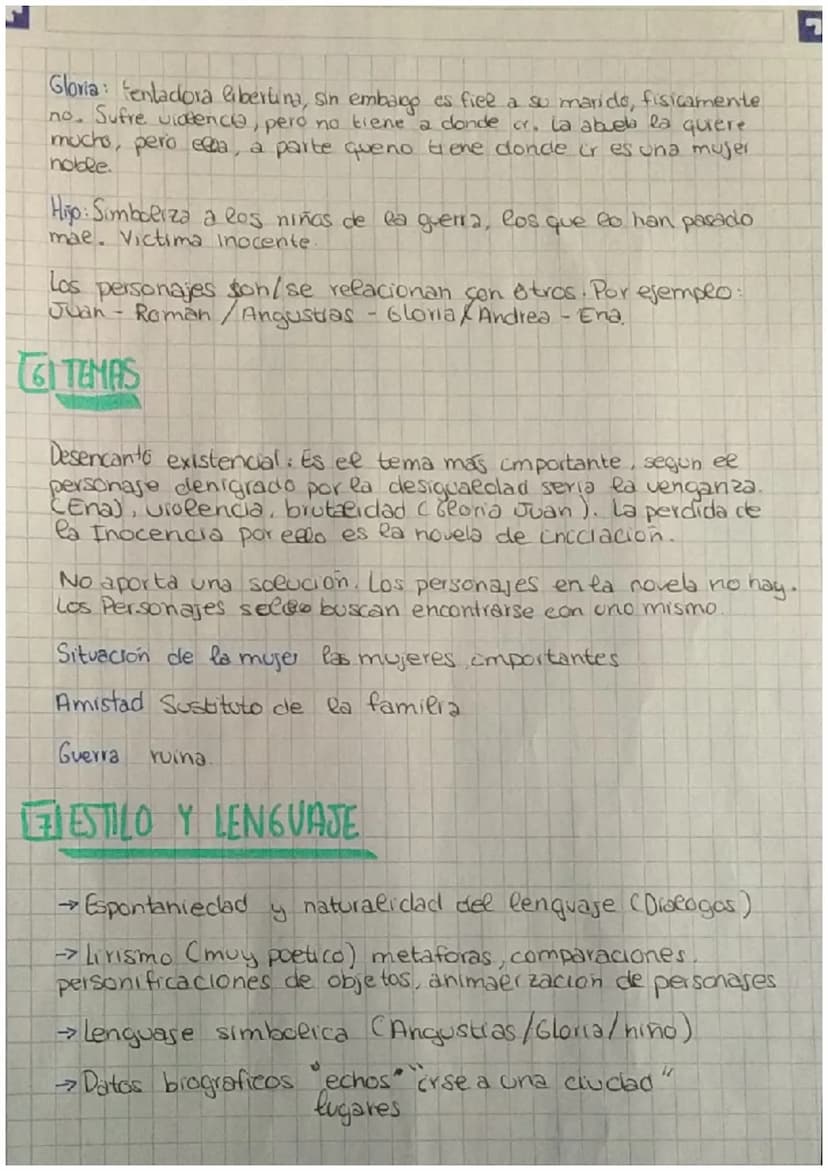 Gloria: tentadora libertina, sin embargo es fiel a su marido, fisicamente
no. Sufre violencia, pero no tiene a donde ir. La abuela la quiere
mucho, pero ella, a parte que no tiene donde ir es una mujer
noble.
Hijo: Simboliza a los niños de la guerra, los que lo han pasado
mal. Victima inocente.
Los personajes son/se relacionan con otros. Por ejemplo:
Juan - Roman / Angustias - Gloria / Andrea - Ena.
6 TEMAS
Desencanto existencial: Es el tema más importante, segun el
personaje denigrado por la desigualdad seria la venganza.
(Ena), violencia, brutalidad (Gloria Juan). La perdida de
la Inocencia por ello es la novela de iniciación.
No aporta una solución. Los personajes en la novela no hay.
Los Personajes solo buscan encontrarse con uno mismo.
Situación de la mujer las mujeres importantes
Amistad Sustituto de la familia
Guerra ruina.
7 ESTILO Y LENGUAJE
→ Espontaniedad y naturalidad del lenguaje (Dialogos)
→ Lirismo (muy poetico) metaforas, comparaciones,
personificaciones de objetos, animalización de personajes
→ Lenguaje simbolica (Angustias/Gloria/niño)
→ Datos biograficos "echos" "irse a una ciudad"
lugares